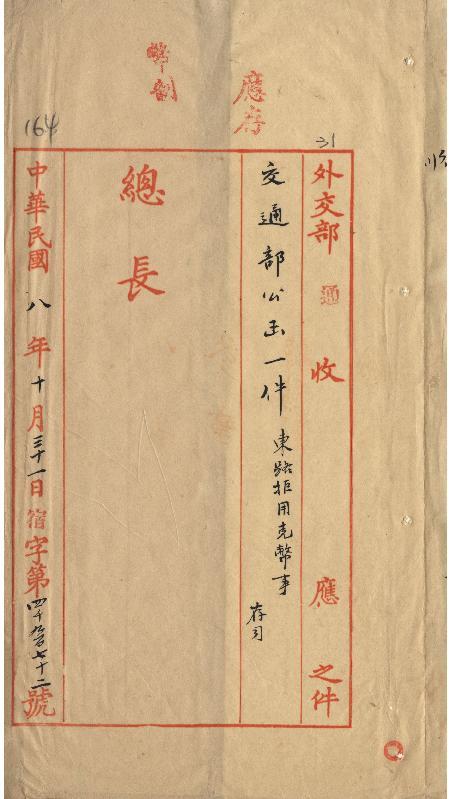 應存
31
外交部 通 收 應 之件
交通部公函一件 東路拒用克幣事 存司
總長
164
中華民國八年十月三十一日宿字第四千九百七十二號